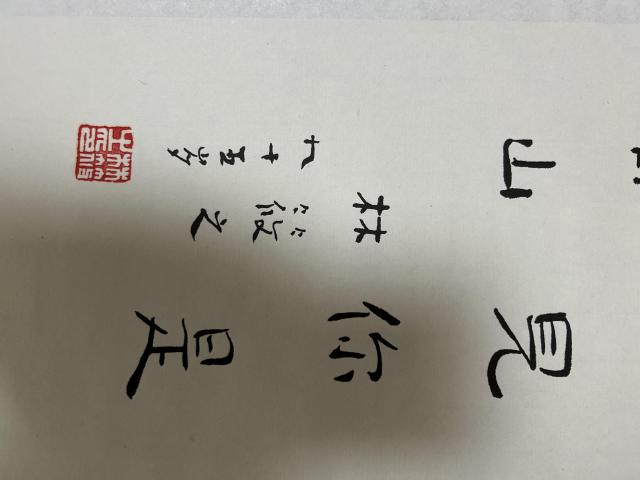 見你是
山
林筱之
九十五岁